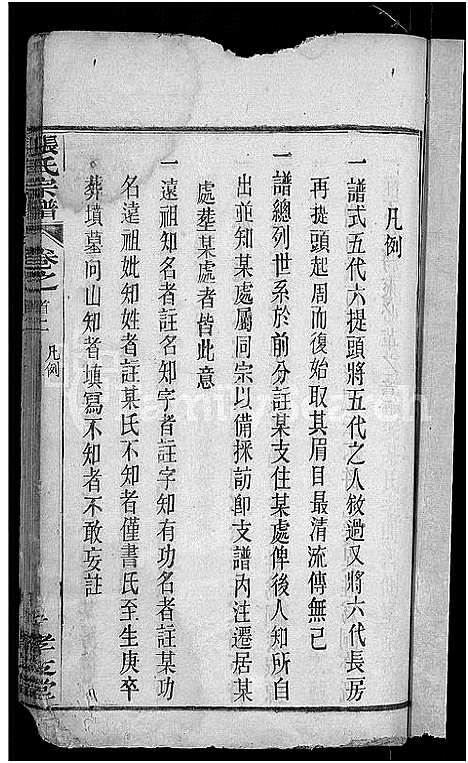 凡例
一譜式五代六提頭將五代之人敘過又將六代長房
再提頭起周而復始取其眉目最清流傳無已
一譜總列世系於前分註某支住某處俾後人知所自
出並知某處屬同宗以備採訪卽支譜內注遷居某
處塟某處者皆此意
一遠祖知名者註名知字者註字知有功名者註某功
名遠祖妣知姓者註某氏不知者僅書氏至生庚卒
葬墳墓向山知者填寫不知者不敢妄註
張氏宗譜
卷之
首上
凡例
孝友堂